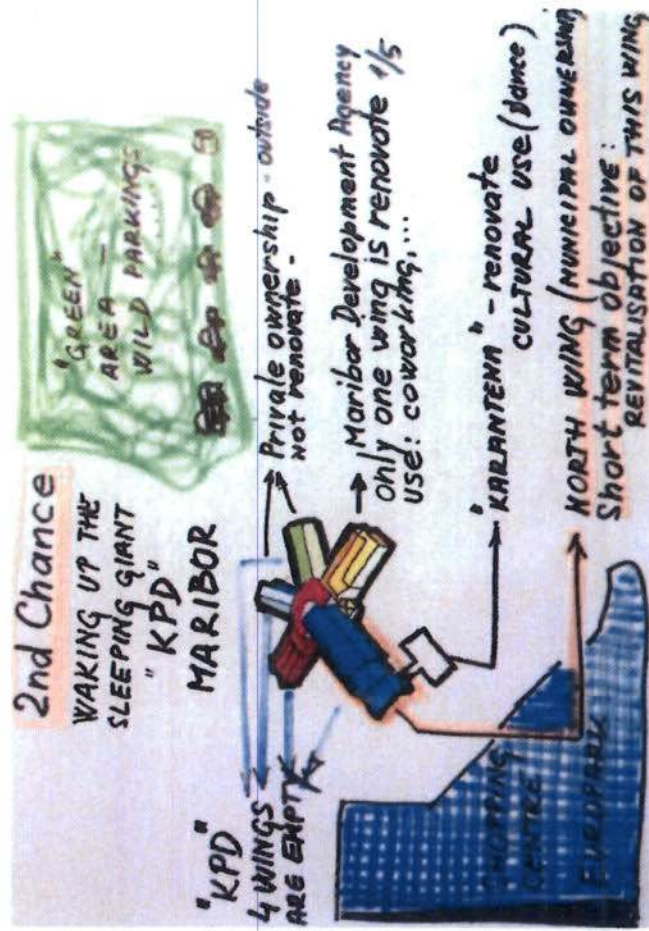 2nd Chance
WAKING UP THE
SLEEPING GIANT
"KPD"
MARIBOR
"GREEN"
AREA -
WILD PARKINGS
"KPD"
4 WINGS
ARE EMPTY
Private ownership - outside
not renovate -
Maribor Development Agency
only one wing is renovate 1/5
use: coworking,...
"KARANTENA" - renovate
CULTURAL USE (dance)
NORTH WING (MUNICIPAL OWNERSHIP)
Short term objective:
REVITALISATION OF THIS WING
SHOPPING
CENTRE
EUROPARK